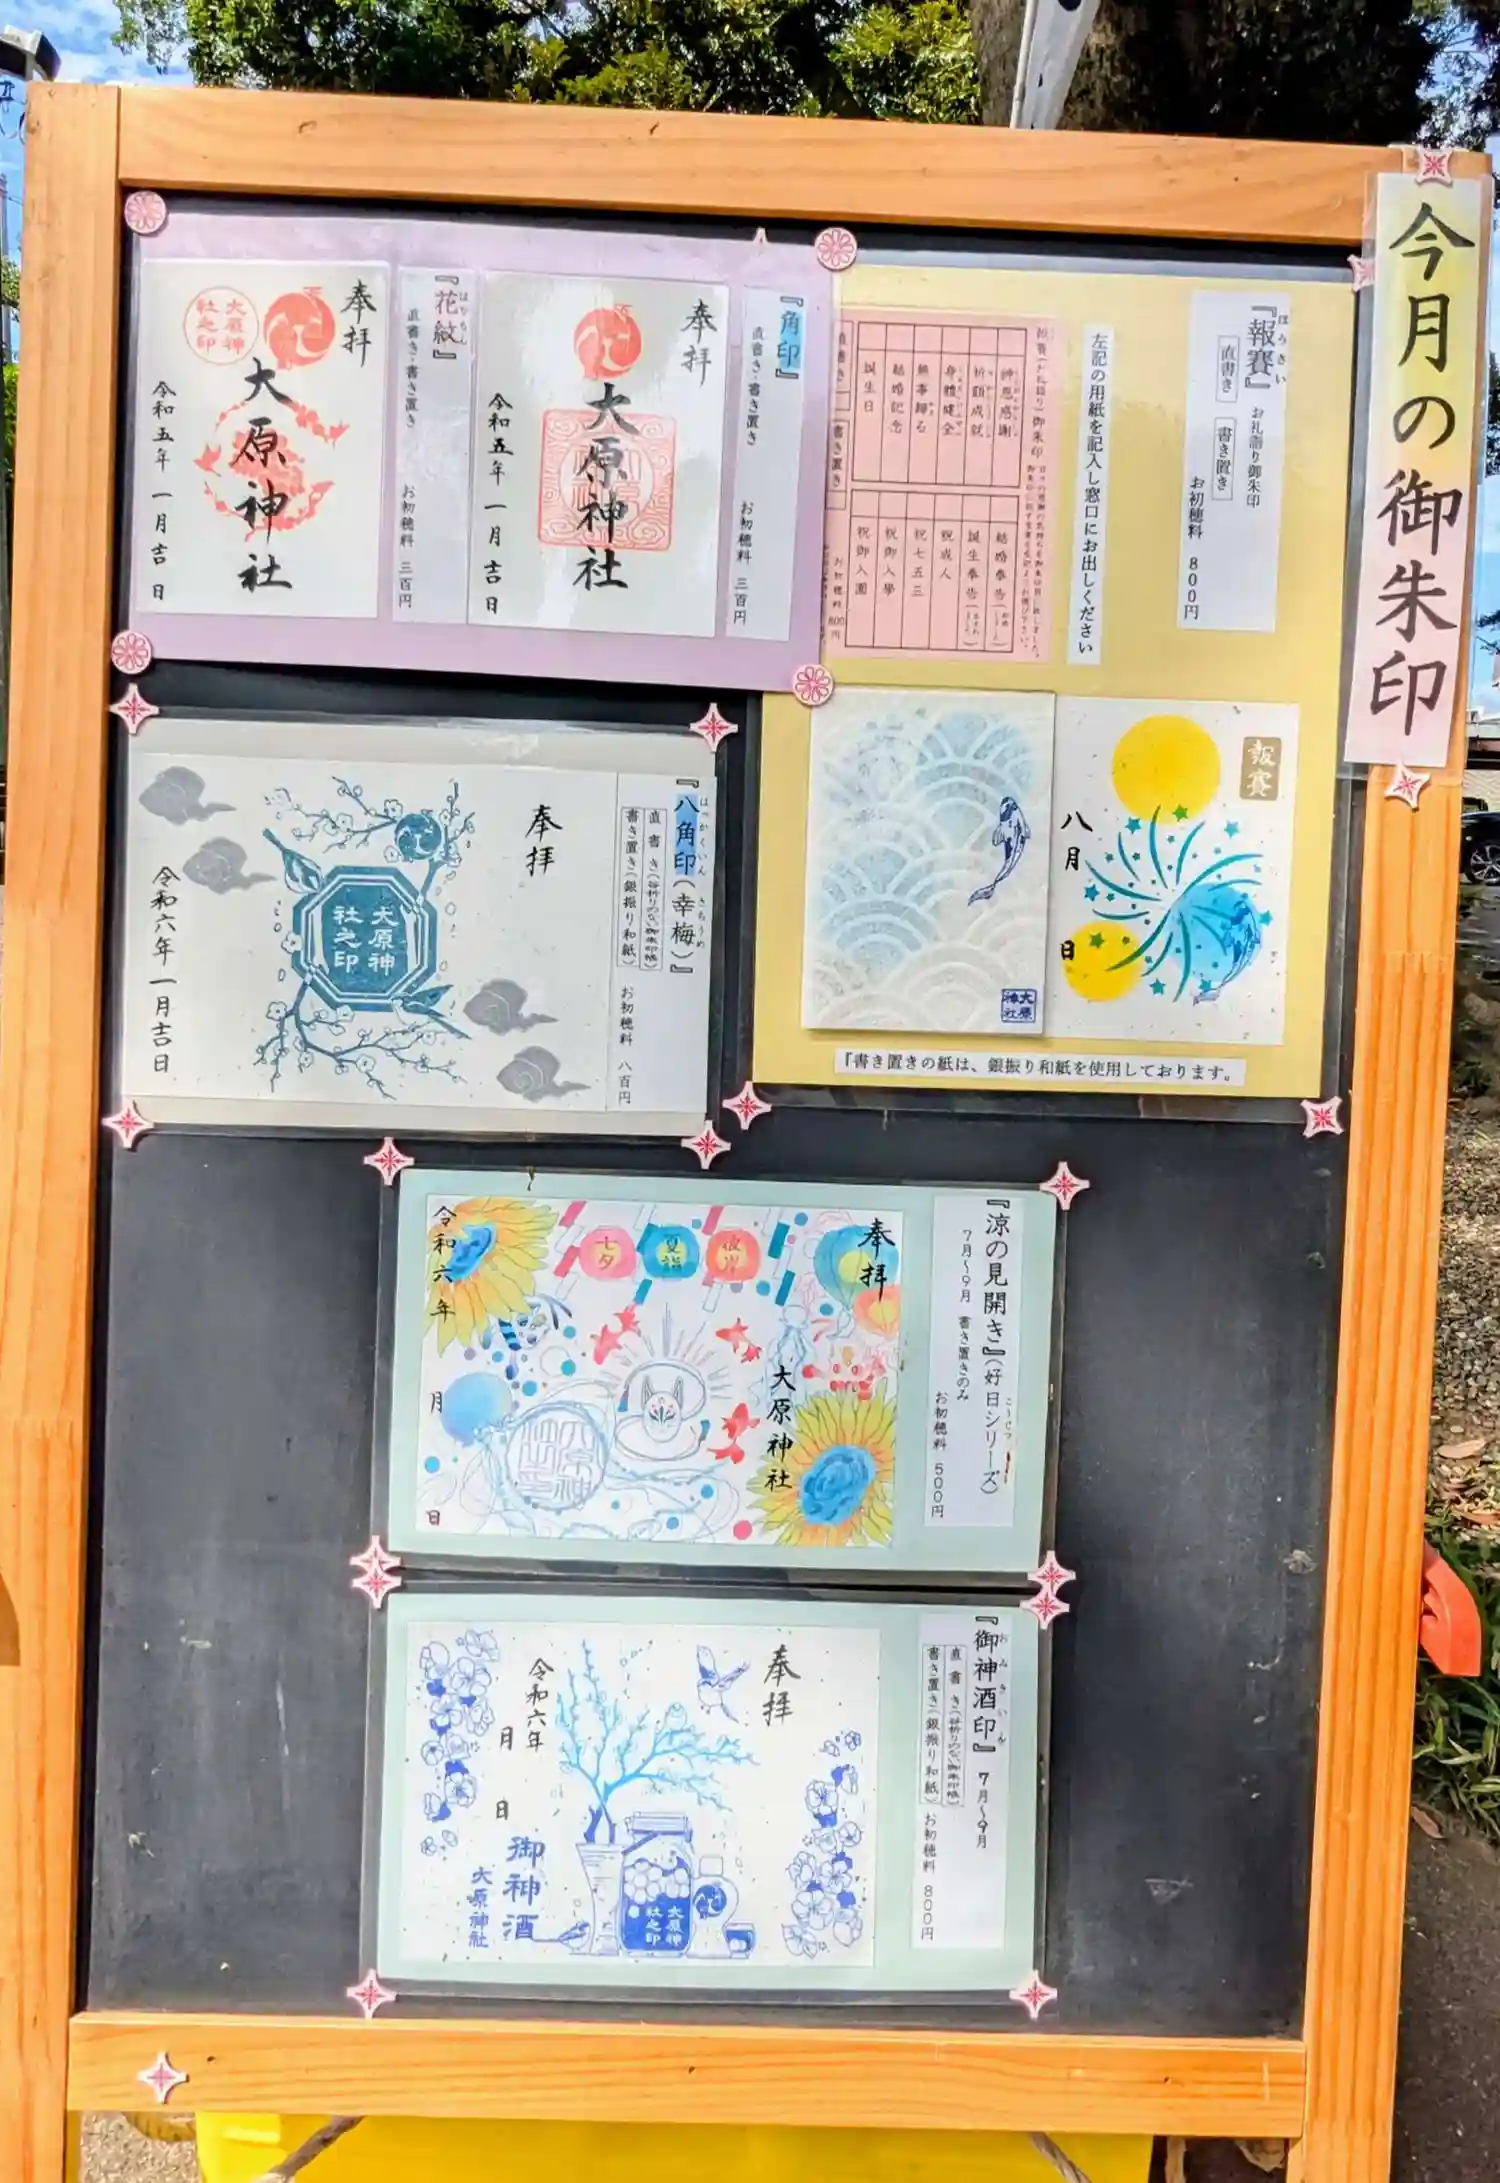 今月の御朱印
『報賽』
ほうさい
直書き
書き置き
お礼詣り御朱印
お初穂料 800円
左記の用紙を記入し窓口にお出しください
御朱印
神恩感謝
祈願成就
身體健全
無事歸る
結婚記念
誕生日
結婚奉告
誕生奉告
祝成人
祝七五三
祝御入學
祝御入園
直書き
書き置き
お初穂料 800円
報賽
八月
日
大原神社
『書き置きの紙は、銀振り和紙を使用しております。
『角印』
直書き・書き置き
お初穂料 三百円
奉拝
大原神社
令和五年 一月吉日
『花紋』
はなもん
直書き・書き置き
お初穂料 三百円
奉拝
大原神社之印
大原神社
令和五年 一月吉日
『八角印(幸梅)』
はっかくいん さちうめ
直書き(谷折りのない御朱印帳)
書き置き(銀振り和紙)
お初穂料 八百円
奉拝
大原神社之印
令和六年一月吉日
『涼の見開き』(好日シリーズ)
7月〜9月 書き置きのみ
お初穂料 500円
奉拝
七夕
夏詣
大原神社
令和六年
月
日
『御神酒印』 7月〜9月
おみきいん
直書き(谷折りのない御朱印帳)
書き置き(銀振り和紙)
お初穂料 800円
奉拝
令和六年
月
日
御神酒
大原神社
大原神社之印